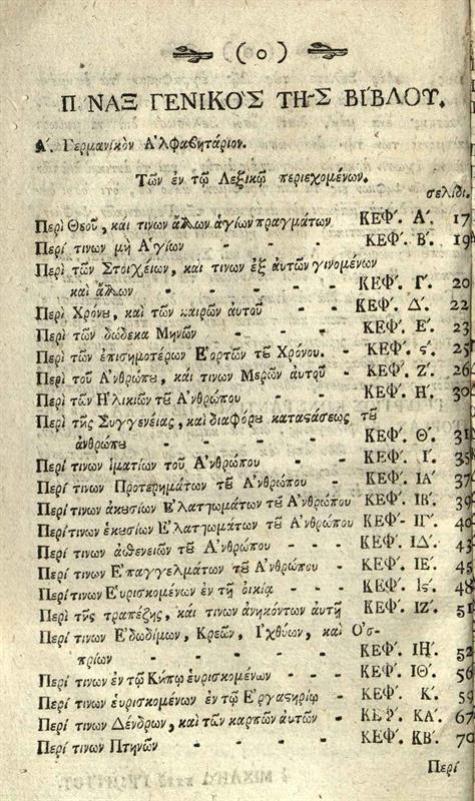 ( ο )
ΠΙΝΑΞ ΓΕΝΙΚΟ'Σ ΤΗ~Σ ΒΙ'ΒΛΟΥ.
Α'. Γερμανικὸν Α'λφαβητάριον.
Τῶν ἐν τῷ Λεξικῷ περιεχομένων.
σελίδι.
Περὶ Θεοῦ, καὶ τινων ἄλλων ἁγίων πραγμάτων ΚΕΦ'. Α'. 17
Περί τινων μὴ Α'γίων - - - - ΚΕΦ'. Β'. 19
Περὶ τῶν Στοιχείων, καὶ τινων ἐξ αὐτῶν γινομένων
καὶ ἄλλων - - - - - ΚΕΦ'. Γ'. 20
Περὶ Χρόνȣ, καὶ τῶν καιρῶν ἀυτοῦ - - ΚΕΦ'. Δ'. 22
Περὶ τῶν δώδεκα Μηνῶν - - - ΚΕΦ'. Ε'. 23
Περὶ τῶν ἐπισημοτέρων Ε'ορτῶν τȣ͂ Χρόνου. - ΚΕΦ'. ς'. 25
Περὶ τοῦ Α'νθρώπȣ, καί τινων Μερῶν ἀυτοῦ - ΚΕΦ'. Ζ'. 26
Περὶ τῶν Η'λικιῶν τȣ͂ Α'νθρώπου - - ΚΕΦ'. Η'. 30
Περὶ τῆς Συγγενείας, καὶ διαφόρȣ καταϛάσεως τȣ͂
ἀνθρώπȣ - - - - - ΚΕΦ'. Θ'. 31
Περί τινων ἱματίων τοῦ Α'νθρώπου - - ΚΕΦ'. Ι'. 35
Περί τινων Προτερημάτων τȣ͂ Α'νθρώπου - ΚΕΦ'. ΙΑ' 37
Περί τινων ἀκȣσίων Ε'λαττωμάτων τȣ͂ Α'νθρώπου ΚΕΦ'. ΙΒ'. 39
Περί τινων ἑκȣσίων Ε'λαττωμάτων τȣ͂ Α'νθρώπου ΚΕΦ'- ΙΓ'. 40
Περί τινων ἀσθενειῶν τȣ͂ Α'νθρώπου - - - ΚΕΦ'. ΙΔ'. 43
Περί τινων Ε'παγγελμάτων τȣ͂ Α'νθρώπου - ΚΕΦ'. ΙΕ'. 45
Περί τινων Ε'υρισκομένων ἐν τῇ οἰκίᾳ - - ΚΕΦ'. Ις'. 48
Περὶ τῆς τραπέζης, καί τινων ἀνηκόντων ἀυτῇ ΚΕΦ'. ΙΖ'. 51
Περί τινων Ε'δωδίμων, Κρεῶν, Ι'χθύων, καὶ Ο'σ-
πρίων - - - - - ΚΕΦ'. ΙΗ'. 52
Περί τινων ἐν τῷ Κήπῳ ἑυρισκομένων - - ΚΕΦ'. ΙΘ'. 56
Περί τινων ἑυρισκομένων ἐν τῷ Ε'ργαϛηρίῳ - ΚΕΦ'. Κ'. 59
Περί τινων Δένδρων, καὶ τῶν καρπῶν ἀυτῶν - ΚΕΦ'. ΚΑ'. 67
Περί τινων Πτηνῶν - - - - ΚΕΦ'. ΚΒ'. 70
Περί